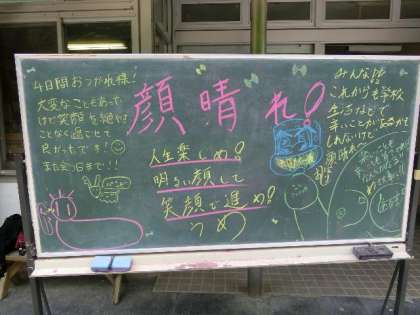 4日間おつかれ様！
大変なこともあった
けど笑顔を絶やす
ことなく過ごせて
良かったです！
また会う日まで！！
顔晴れ！
人生楽しめ！
明るい顔して
笑顔で進め！
うめ
みんな！！
これからも学校
生活などで
辛いことがあるかも
しれないけど
顔晴れ〜